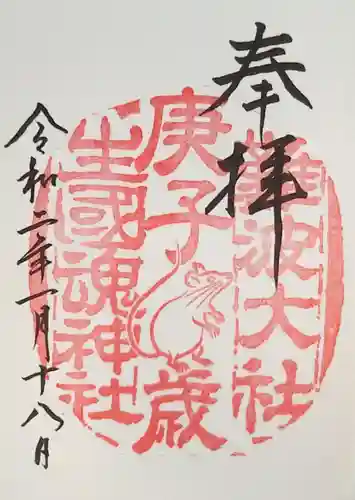 奉拝
難波大社
庚子歳
生國魂神社
令和二年一月十八月